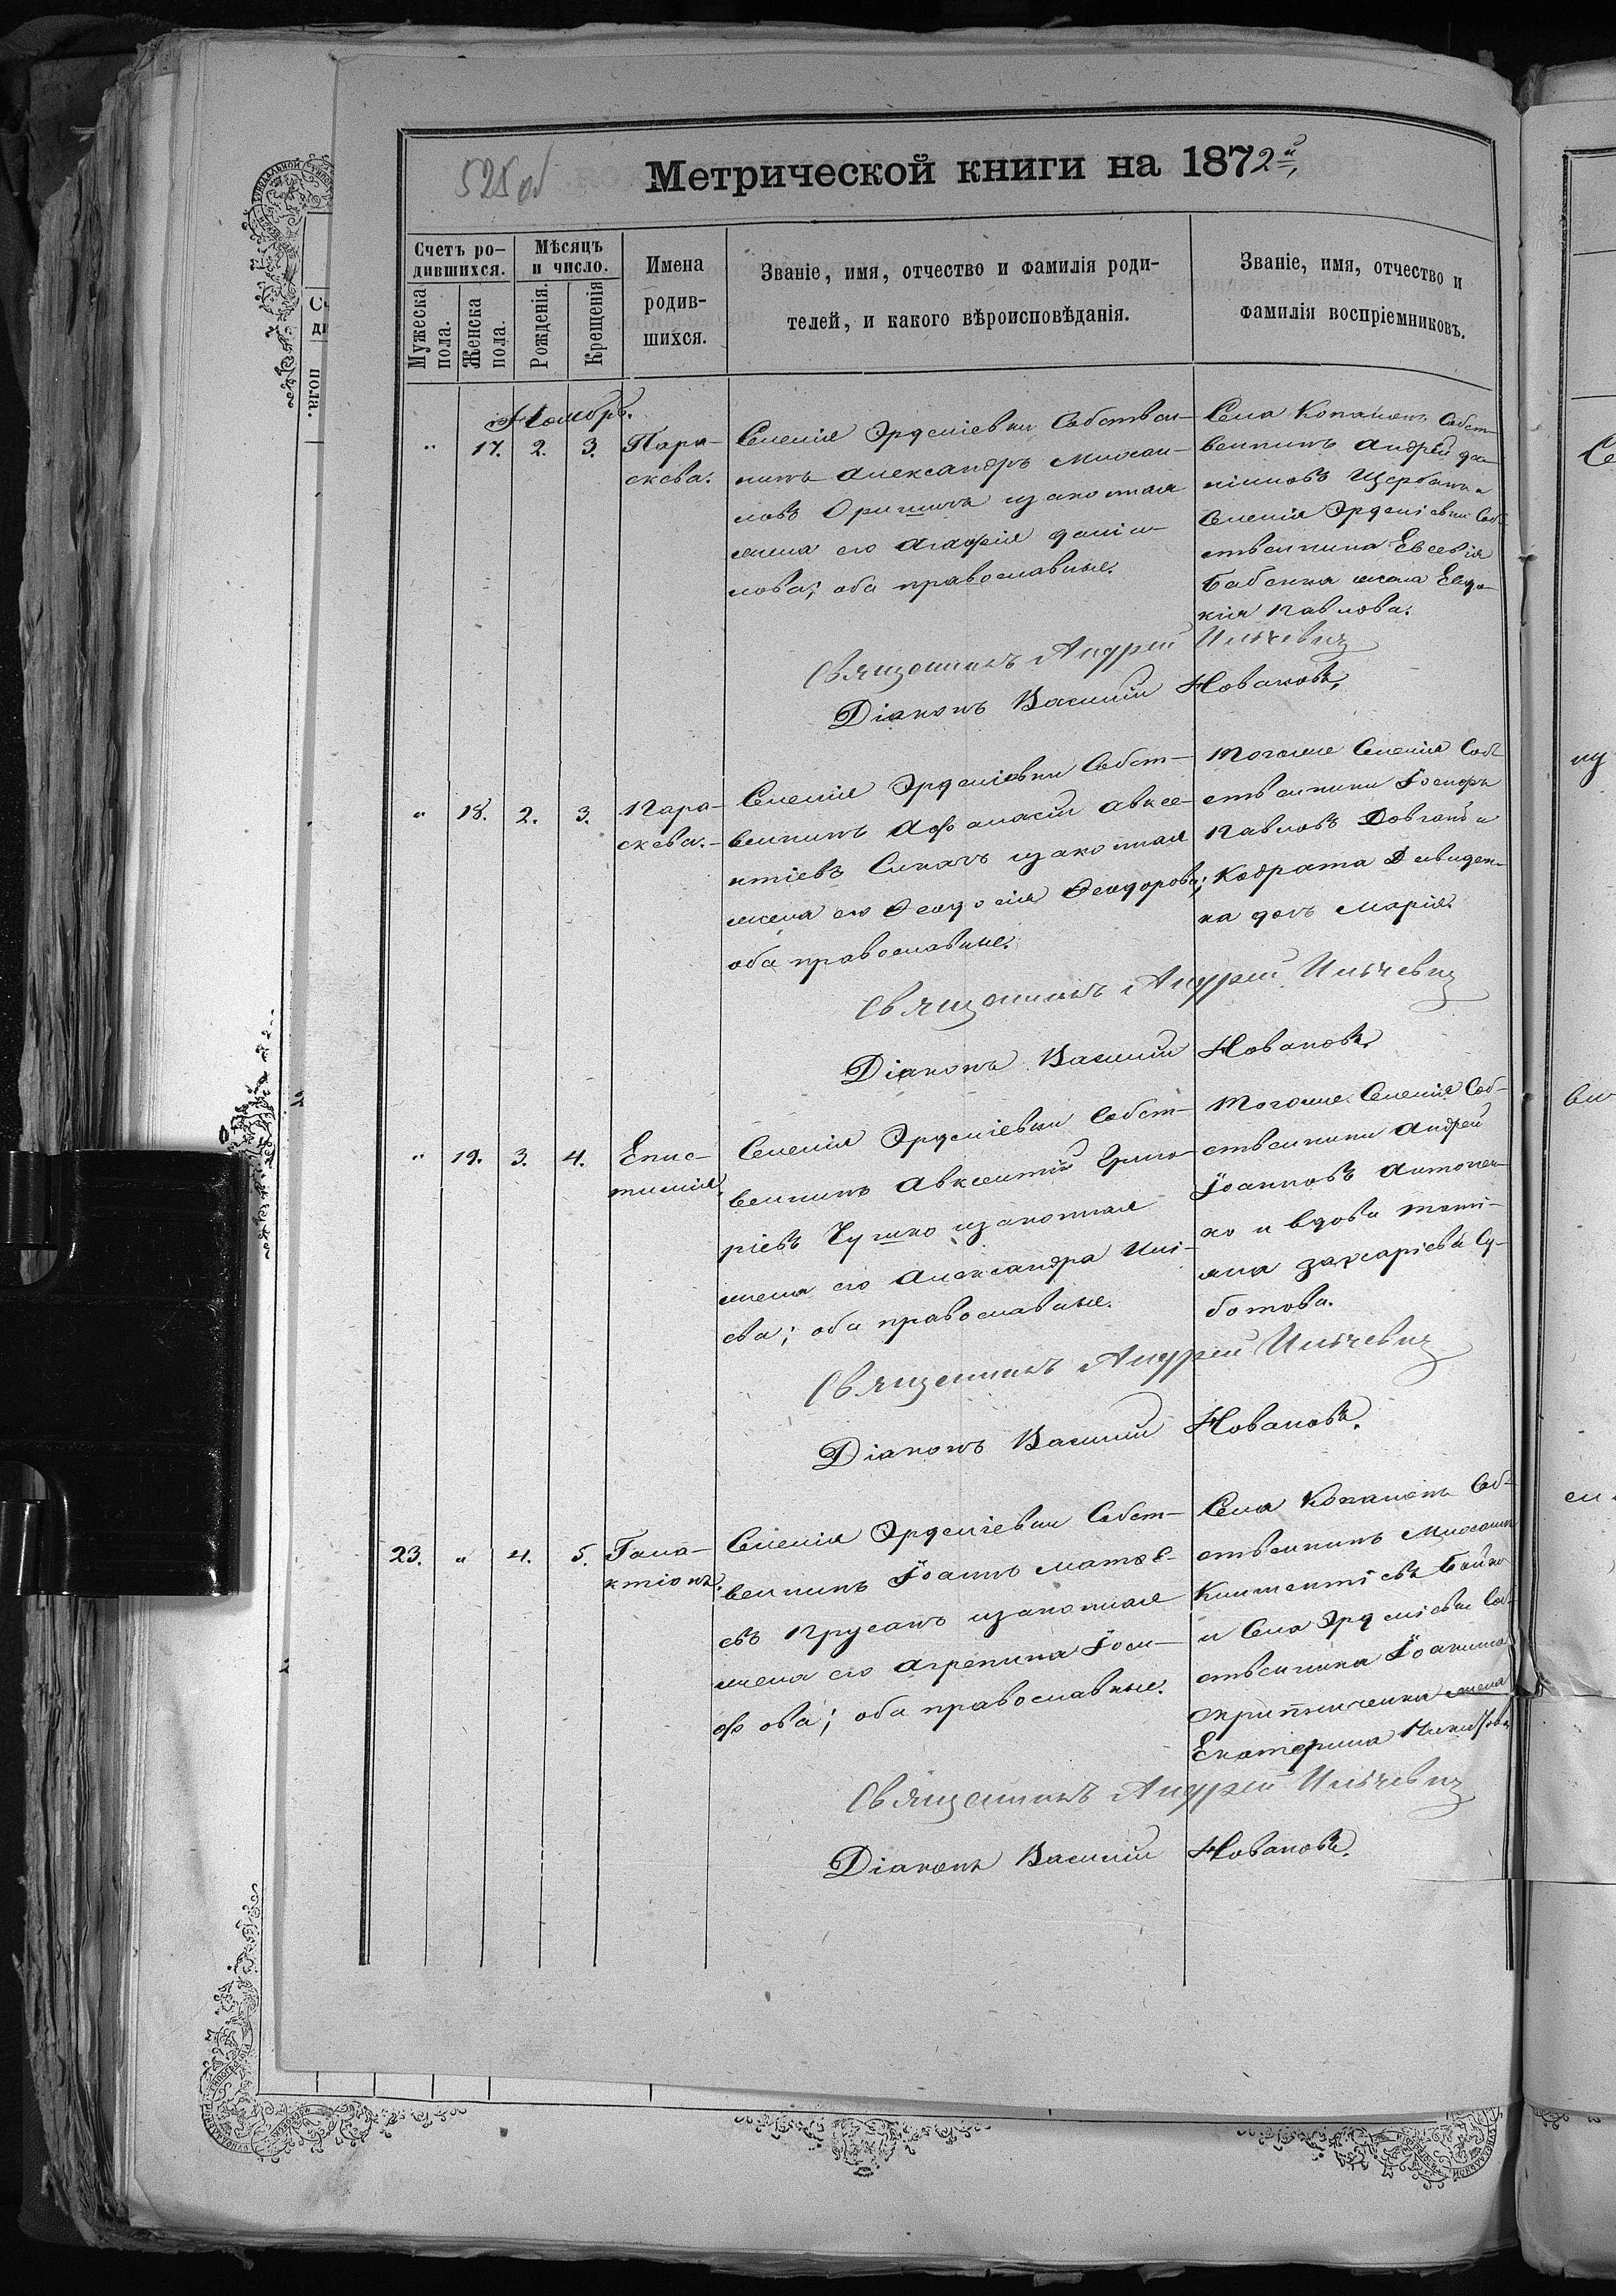 525 об
Метрической книги на 1872й,
Счетъ ро-
дившихся.
Мужеска пола.
Женска пола.
Мѣсяцъ
и число.
Рожденія.
Крещенія
Имена
родив-
шихся.
Званіе, имя, отчество и фамилія роди-
телей, и какого вѣроисповѣданія.
Званіе, имя, отчество и
фамилія воспріемниковъ.
Ноябрь.
" 17. 2. 3.
Пара-
скева.
Селенія Эрделіевки Собствен-
никъ Александръ Михаи-
ловъ и законная
жена его Агафія Даніи-
лова; оба православные.
Села Копанокъ Собст-
венникъ Андрей Да-
ніиловъ Щербана и
Селенія Эрделіевки Соб-
ственника Евсевія
Бабенка жена Евдо-
кія Павлова.
Священникъ Андрей
Діаконъ Василій Новаковъ,
" 18. 2. 3.
Пара-
скева.
Селенія Эрделіевки Собст-
венникъ Афанасій Авксе-
нтіевъ и законная
жена его Феодосія Феодорова;
оба православные.
Тогоже Селенія Соб-
ственники Іосифъ
Павловъ и
Кодрата
ка дочь Марія.
Священникъ Андрей
Діаконъ Василій Новаковъ.
" 19. 3. 4.
Епис-
тимія.
Селенія Эрделіевки Собст-
венникъ Авксентій Григо-
ріевъ и законная
жена его Александра Илі-
ева; оба православные.
Тогоже Селенія Соб-
ственники Андрей
Іоанновъ Антонен-
ко и вдова Таті-
яна Захаріева Су-
ботова.
Священникъ Андрей
Діаконъ Василій Новаковъ.
23. " 4. 5.
Гала-
ктіонъ.
Селенія Эрделіевки Собст-
венникъ Іоаннъ Матѳѣ-
евъ Прусакъ и законная
жена его Агрепина Іоси-
фова; оба православные.
Села Копанокъ Соб-
ственникъ Михаилъ
и Села Эрделіевки Соб-
ственника Іоакима
Скрипниченка жена
Екатерина
Священникъ Андрей
Діаконъ Василій Новаковъ.